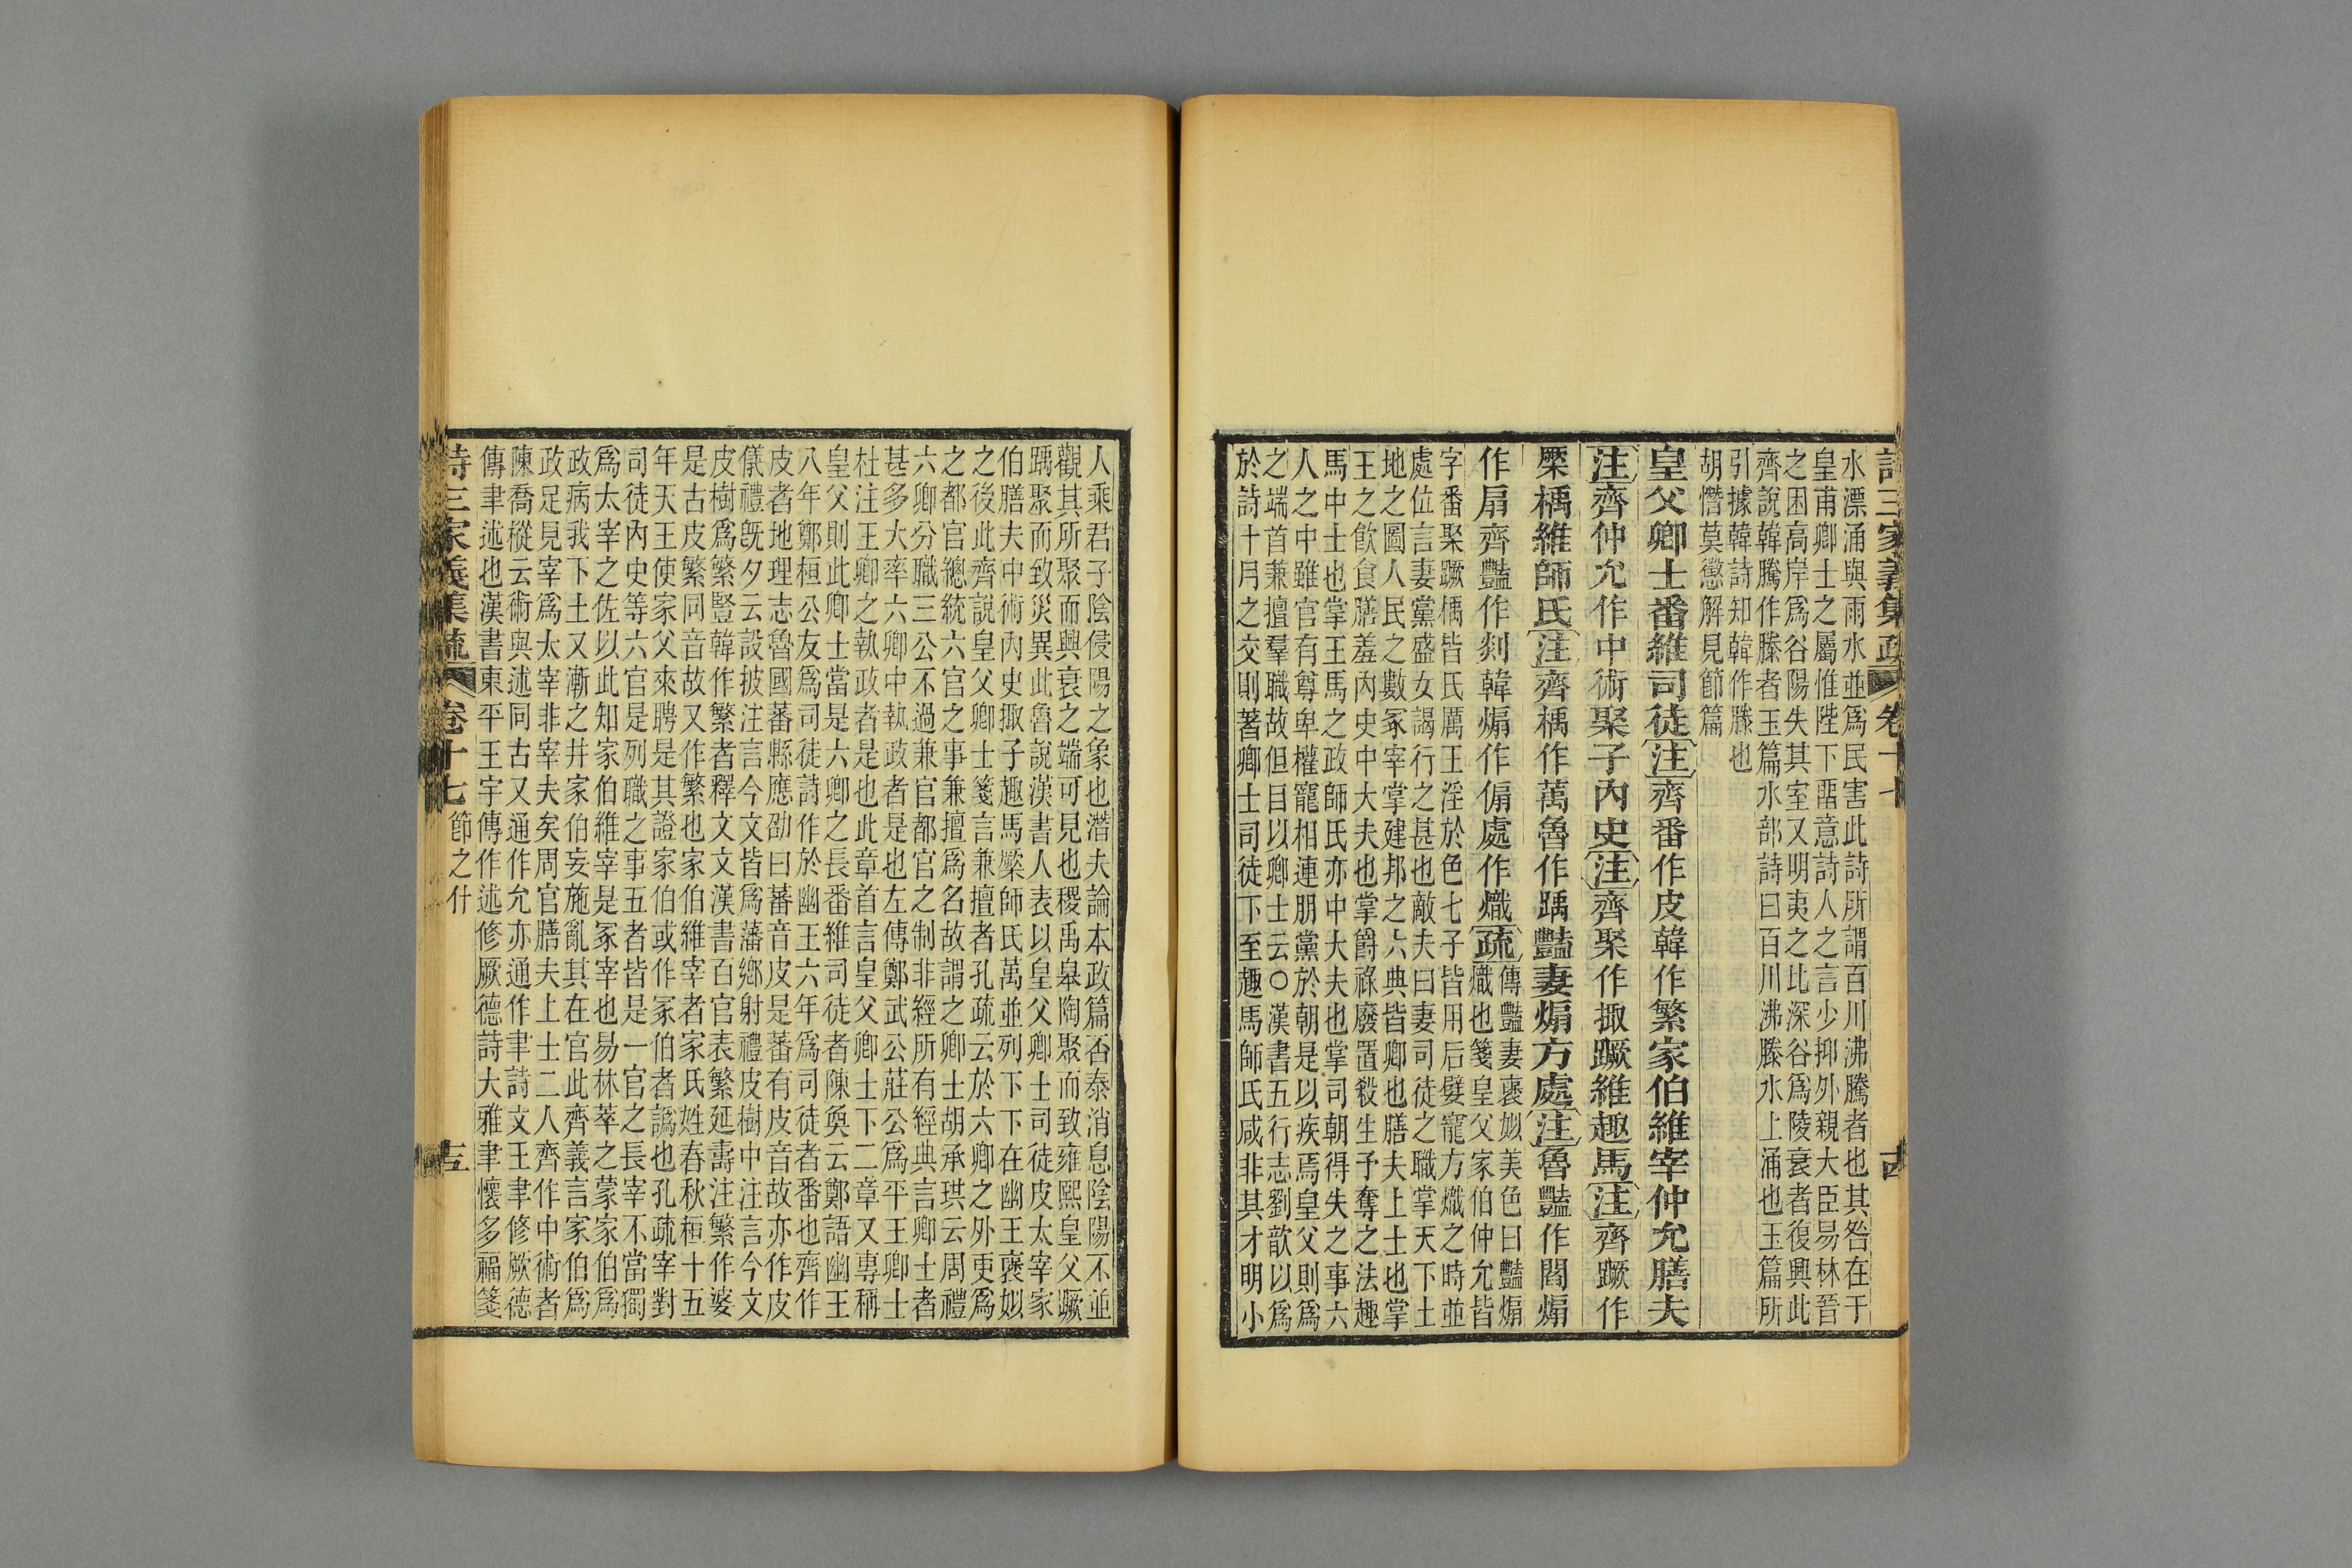 詩三家義集疏 卷十七
水漂涌與雨水並爲民害此詩所謂百川沸騰者也其咎在于
皇甫卿士之屬惟陛下畱意詩人之言少抑外親大臣易林晉
之困高岸爲谷陽失其室又明夷之比深谷爲陵衰者復興此
齊說韓騰作滕者玉篇水部詩曰百川沸滕水上涌也玉篇所
引據韓詩知韓作滕也
胡憯莫懲解見節篇
皇父卿士番維司徒注齊番作皮韓作繁家伯維宰仲允膳夫
注齊仲允作中術聚子內史注齊聚作掫蹶維趣馬注齊蹶作
橜楀維師氏注齊楀作萬魯作踽豔妻煽方處注魯豔作閻煽
作扇齊豔作剡韓煽作偏處作熾疏
傳豔妻褒姒美色曰豔煽
熾也箋皇父家伯仲允皆
字番聚蹶楀皆氏厲王淫於色七子皆用后嬖寵方熾之時並
處位言妻黨盛女謁行之甚也敵夫曰妻司徒之職掌天下土
地之圖人民之數冢宰掌建邦之六典皆卿也膳夫上士也掌
王之飮食膳羞內史中大夫也掌爵祿廢置殺生予奪之法趣
馬中士也掌王馬之政師氏亦中大夫也掌司朝得失之事六
人之中雖官有尊卑權寵相連朋黨於朝是以疾焉皇父則爲
之端首兼擅羣職故但目以卿士云○漢書五行志劉歆以爲
於詩十月之交則著卿士司徒下至趣馬師氏咸非其才明小
人乘君子陰侵陽之象也潛夫論本政篇否泰消息陰陽不並
觀其所聚而興衰之端可見也稷禹皋陶聚而致雍熙皇父蹶
踽聚而致災異此魯說漢書人表以皇父卿士司徒皮太宰家
伯膳夫中術內史掫子趣馬橜師氏萬並列下下在幽王褒姒
之後此齊說皇父卿士箋言兼擅者孔疏云於六卿之外更爲
之都官總統六官之事兼擅爲名故謂之卿士胡承珙云周禮
六卿分職三公不過兼官都官之制非經所有經典言卿士者
甚多大率六卿中執政者是也左傳鄭武公莊公爲平王卿士
杜注王卿之執政者是也此章首言皇父卿士下二章又專稱
皇父則此卿士當是六卿之長番維司徒者陳奐云鄭語幽王
八年鄭桓公友爲司徒詩作於幽王六年爲司徒者番也齊作
皮者地理志魯國蕃縣應劭曰蕃音皮是蕃有皮音故亦作皮
儀禮旣夕云設披注言今文皆爲藩鄉射禮皮樹中注言今文
皮樹爲繁豎韓作繁者釋文文漢書百官表繁延壽注繁作婆
是古皮繁同音故又作繁也家伯維宰者家氏姓春秋桓十五
年天王使家父來聘是其證家伯或作冢伯者譌也孔疏宰對
司徒內史等六官是列職之事五者皆是一官之長宰不當獨
爲太宰之佐以此知家伯維宰是冢宰也易林萃之蒙家伯爲
政病我下土又漸之井家伯妄施亂其在官此齊義言家伯爲
政足見宰爲太宰非宰夫矣周官膳夫上士二人齊作中術者
陳喬樅云術與述同古又通作允亦通作聿詩文王聿修厥德
傳聿述也漢書東平王宇傳作述修厥德詩大雅聿懷多福箋
詩三家義集疏 卷十七 節之什